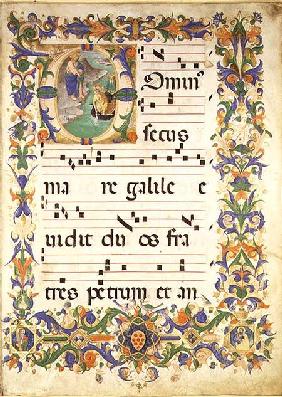 Domin⁹
secus
ma re galilee e
uidit du os fra
tres petrum et an